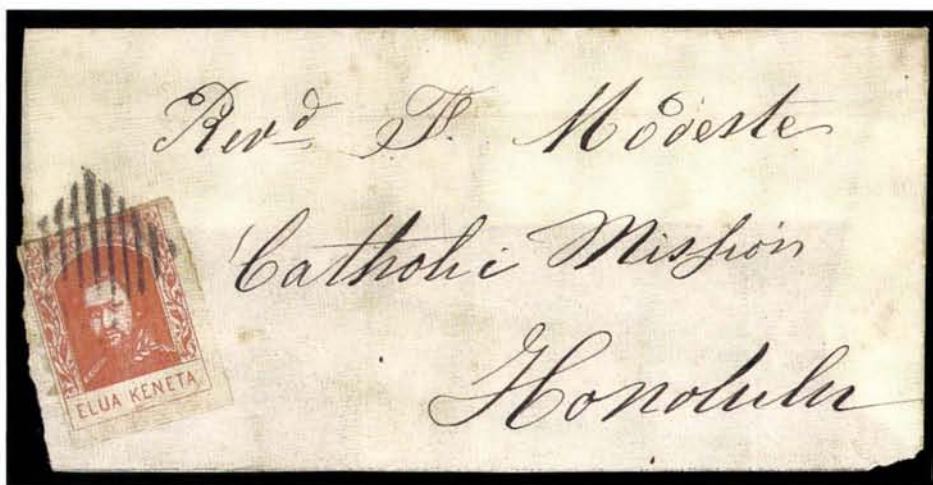 Revd F. Modeste
Catholic Mission
Honolulu
ELUA KENETA